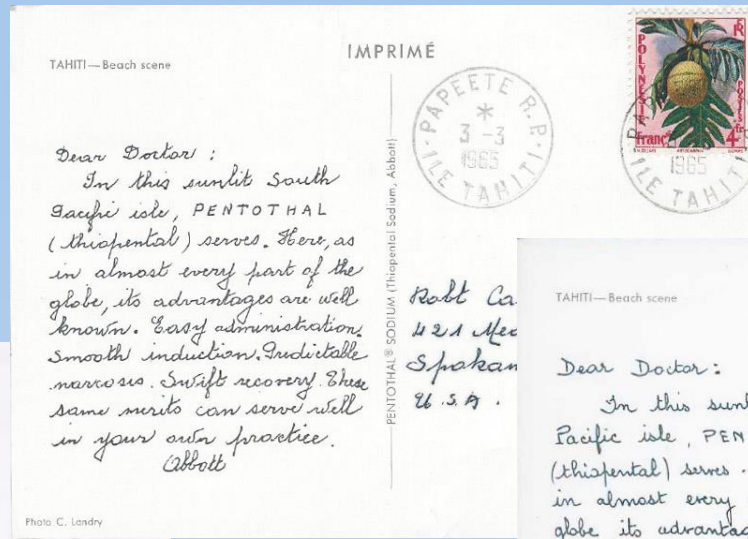 TAHITI—Beach scene
IMPRIMÉ
Dear Doctor :
In this sunlit South
Pacific isle, PENTOTHAL
(thiopental) serves. Here, as
in almost every part of the
globe, its advantages are well
known. Easy administration.
Smooth induction. Predictable
narcosis. Swift recovery. These
same merits can serve well
in your own practice.
Abbott
Photo C. Landry
PENTOTHAL® SODIUM (Thiopental Sodium, Abbott)
PAPEETE R.P.
*
3 -3
1965
ILE TAHITI
POLYNESIE
Française
RF
POSTES
4fr
1965
ILE TAHITI
Robt Ca
421 Med
Spokan
U.S.A.
TAHITI—Beach scene
Dear Doctor :
In this sunl
Pacific isle, PEN
(thiopental) serves.
in almost every
globe its advantag